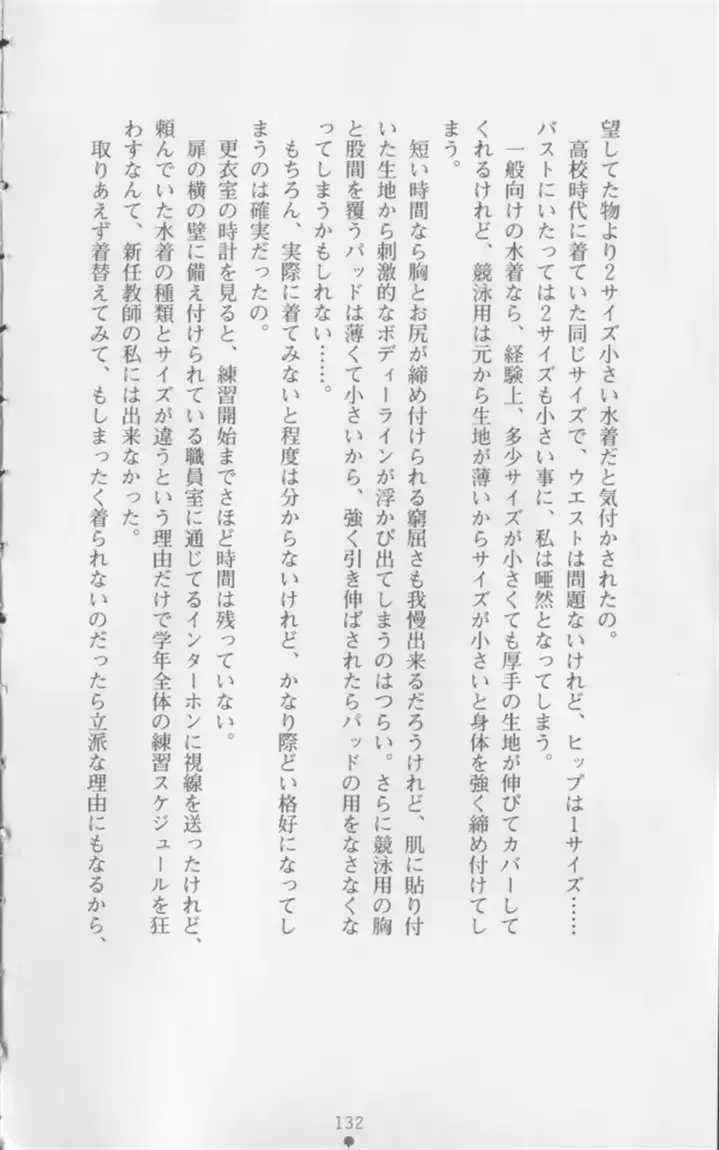 望してた物より２サイズ小さい水着だと気付かされたの。
高校時代に着ていた同じサイズで、ウエストは問題ないけれど、ヒップは１サイズ……
バストにいたっては２サイズも小さい事に、私は唖然となってしまう。
一般向けの水着なら、経験上、多少サイズが小さくても厚手の生地が伸びてカバーして
くれるけれど、競泳用は元から生地が薄いからサイズが小さいと身体を強く締め付けてし
まう。
短い時間なら胸とお尻が締め付けられる窮屈さも我慢出来るだろうけれど、肌に貼り付
いた生地から刺激的なボディーラインが浮かび出てしまうのはつらい。さらに競泳用の胸
と股間を覆うパッドは薄くて小さいから、強く引き伸ばされたらパッドの用をなさなくな
ってしまうかもしれない……。
もちろん、実際に着てみないと程度は分からないけれど、かなり際どい格好になってし
まうのは確実だったの。
更衣室の時計を見ると、練習開始までさほど時間は残っていない。
扉の横の壁に備え付けられている職員室に通じてるインターホンに視線を送ったけれど、
頼んでいた水着の種類とサイズが違うという理由だけで学年全体の練習スケジュールを狂
わすなんて、新任教師の私には出来なかった。
取りあえず着替えてみて、もしまったく着られないのだったら立派な理由にもなるから、
132